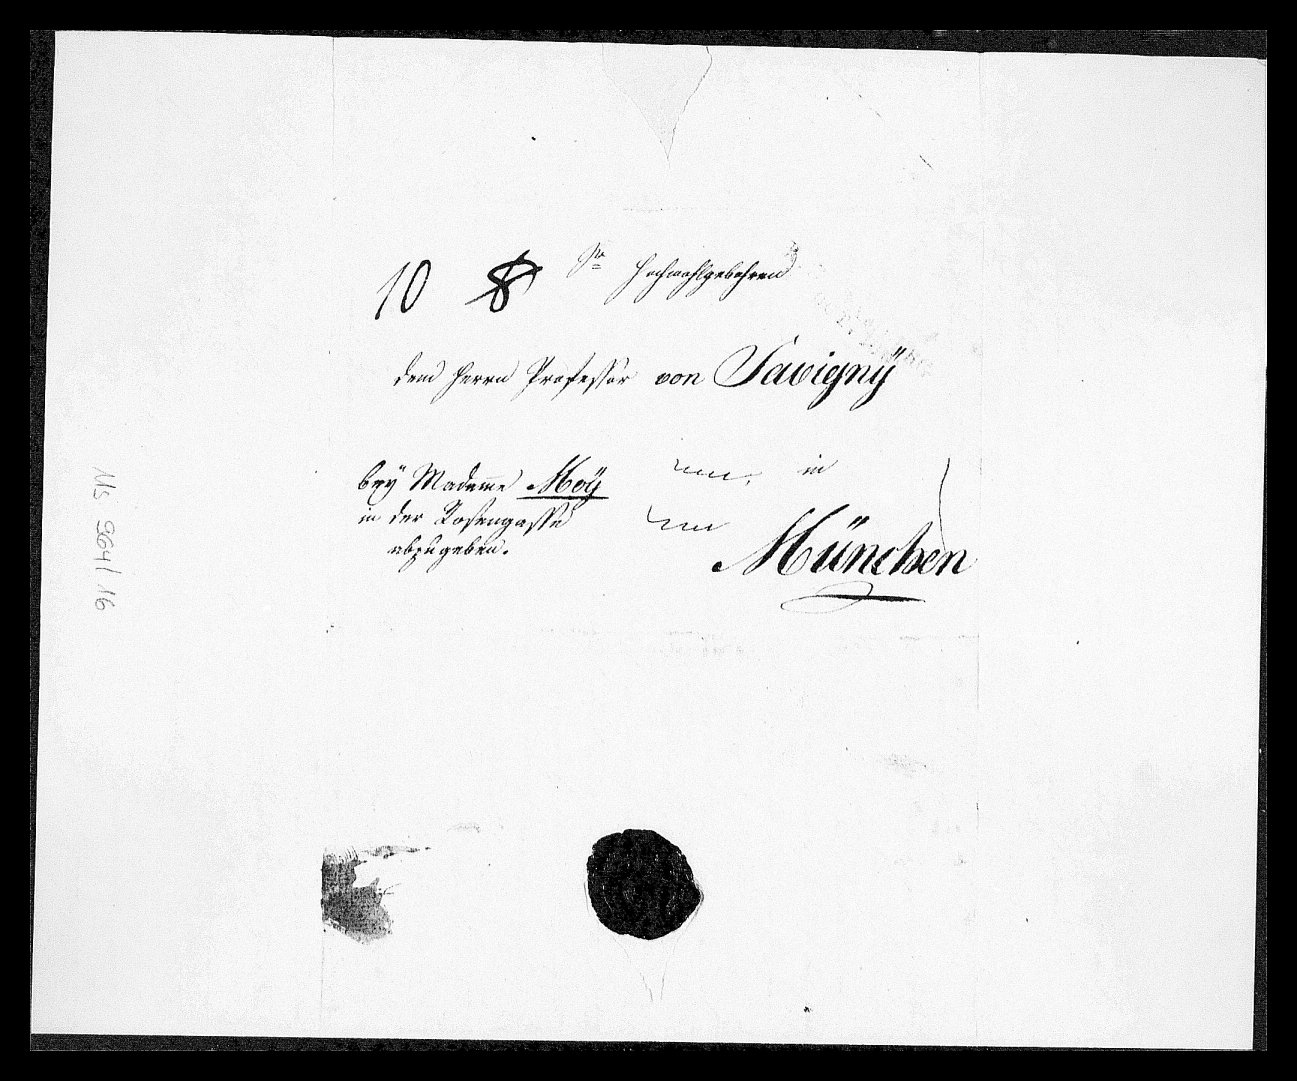 10 8 Sr Hochwohlgebohren
dem Herrn Professor von Savignÿ
in
beÿ Madame Moÿ
in der Rosengasse
abzugeben.
München
Ms 964/16